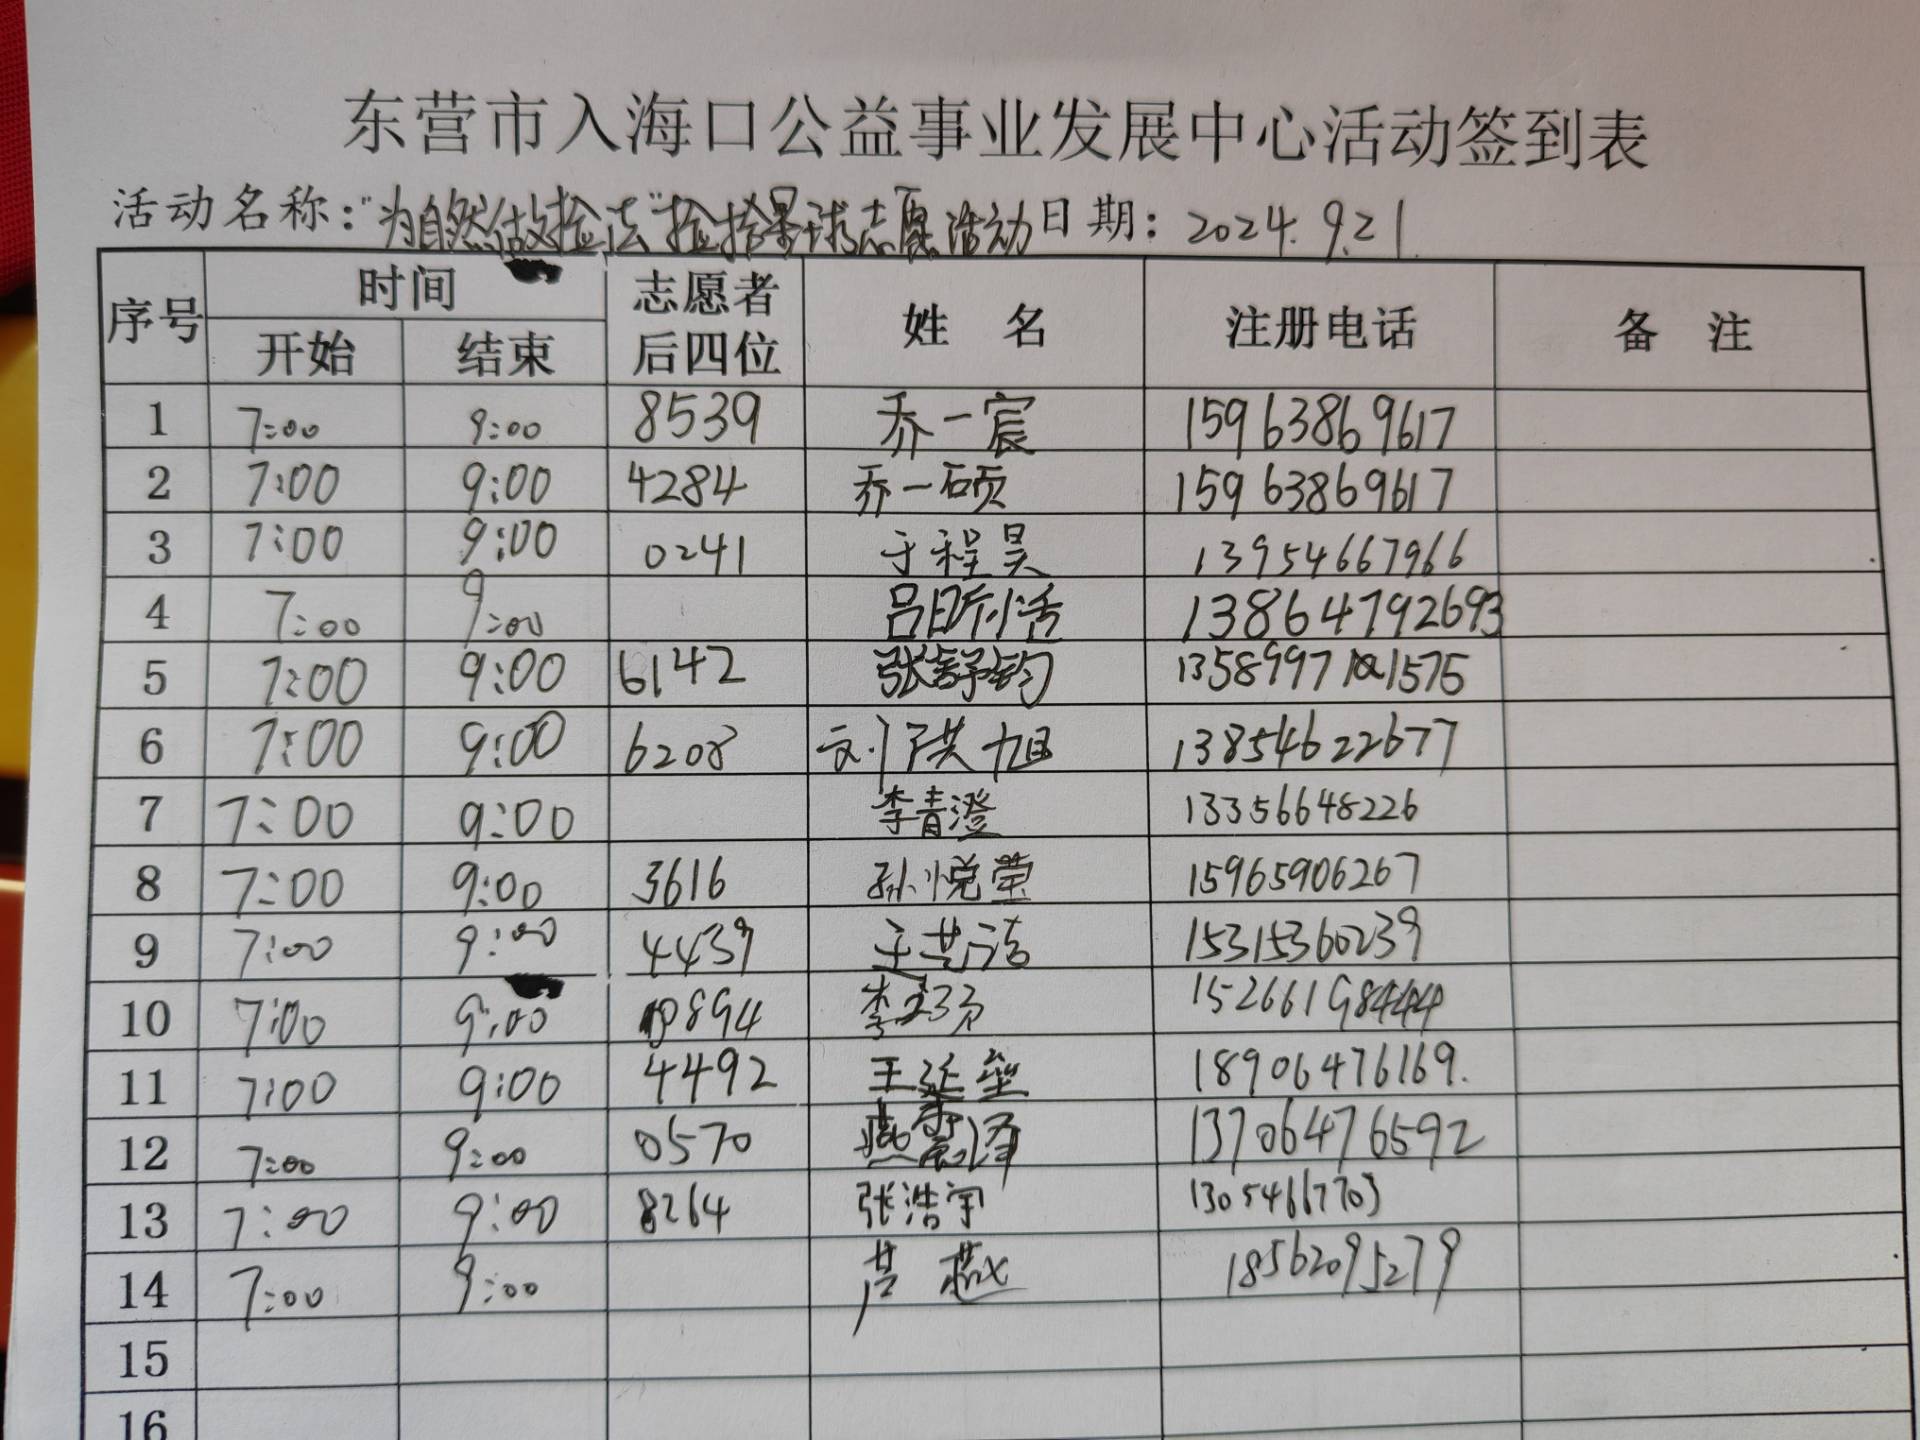 东营市入海口公益事业发展中心活动签到表
活动名称:"为自然做捡法"捡拾暴球志愿活动 日期: 2024.9.21.
序号 时间 开始 结束 志愿者后四位 姓 名 注册电话 备 注
1 7:00 9:00 8539 乔一宸 15963869617
2 7:00 9:00 4284 乔一硕 15963869617
3 7:00 9:00 0241 于程昊 13954667966
4 7:00 9:00 吕昕活 13864792693
5 7:00 9:00 6142 张舒钧 13589971575
6 7:00 9:00 6208 刘洪旭 13854622677
7 7:00 9:00 李青澄 13356648226
8 7:00 9:00 3616 孙悦莹 15965906267
9 7:00 9:00 4439 王艺洁 15315360239
10 7:00 9:00 0894 李 15266198444
11 7:00 9:00 4492 王延垒 18906476169.
12 7:00 9:00 0570 燕 泽 13706476592
13 7:00 9:00 8264 张浩宇 13054667703
14 7:00 9:00 芦樾 18562095279
15
16